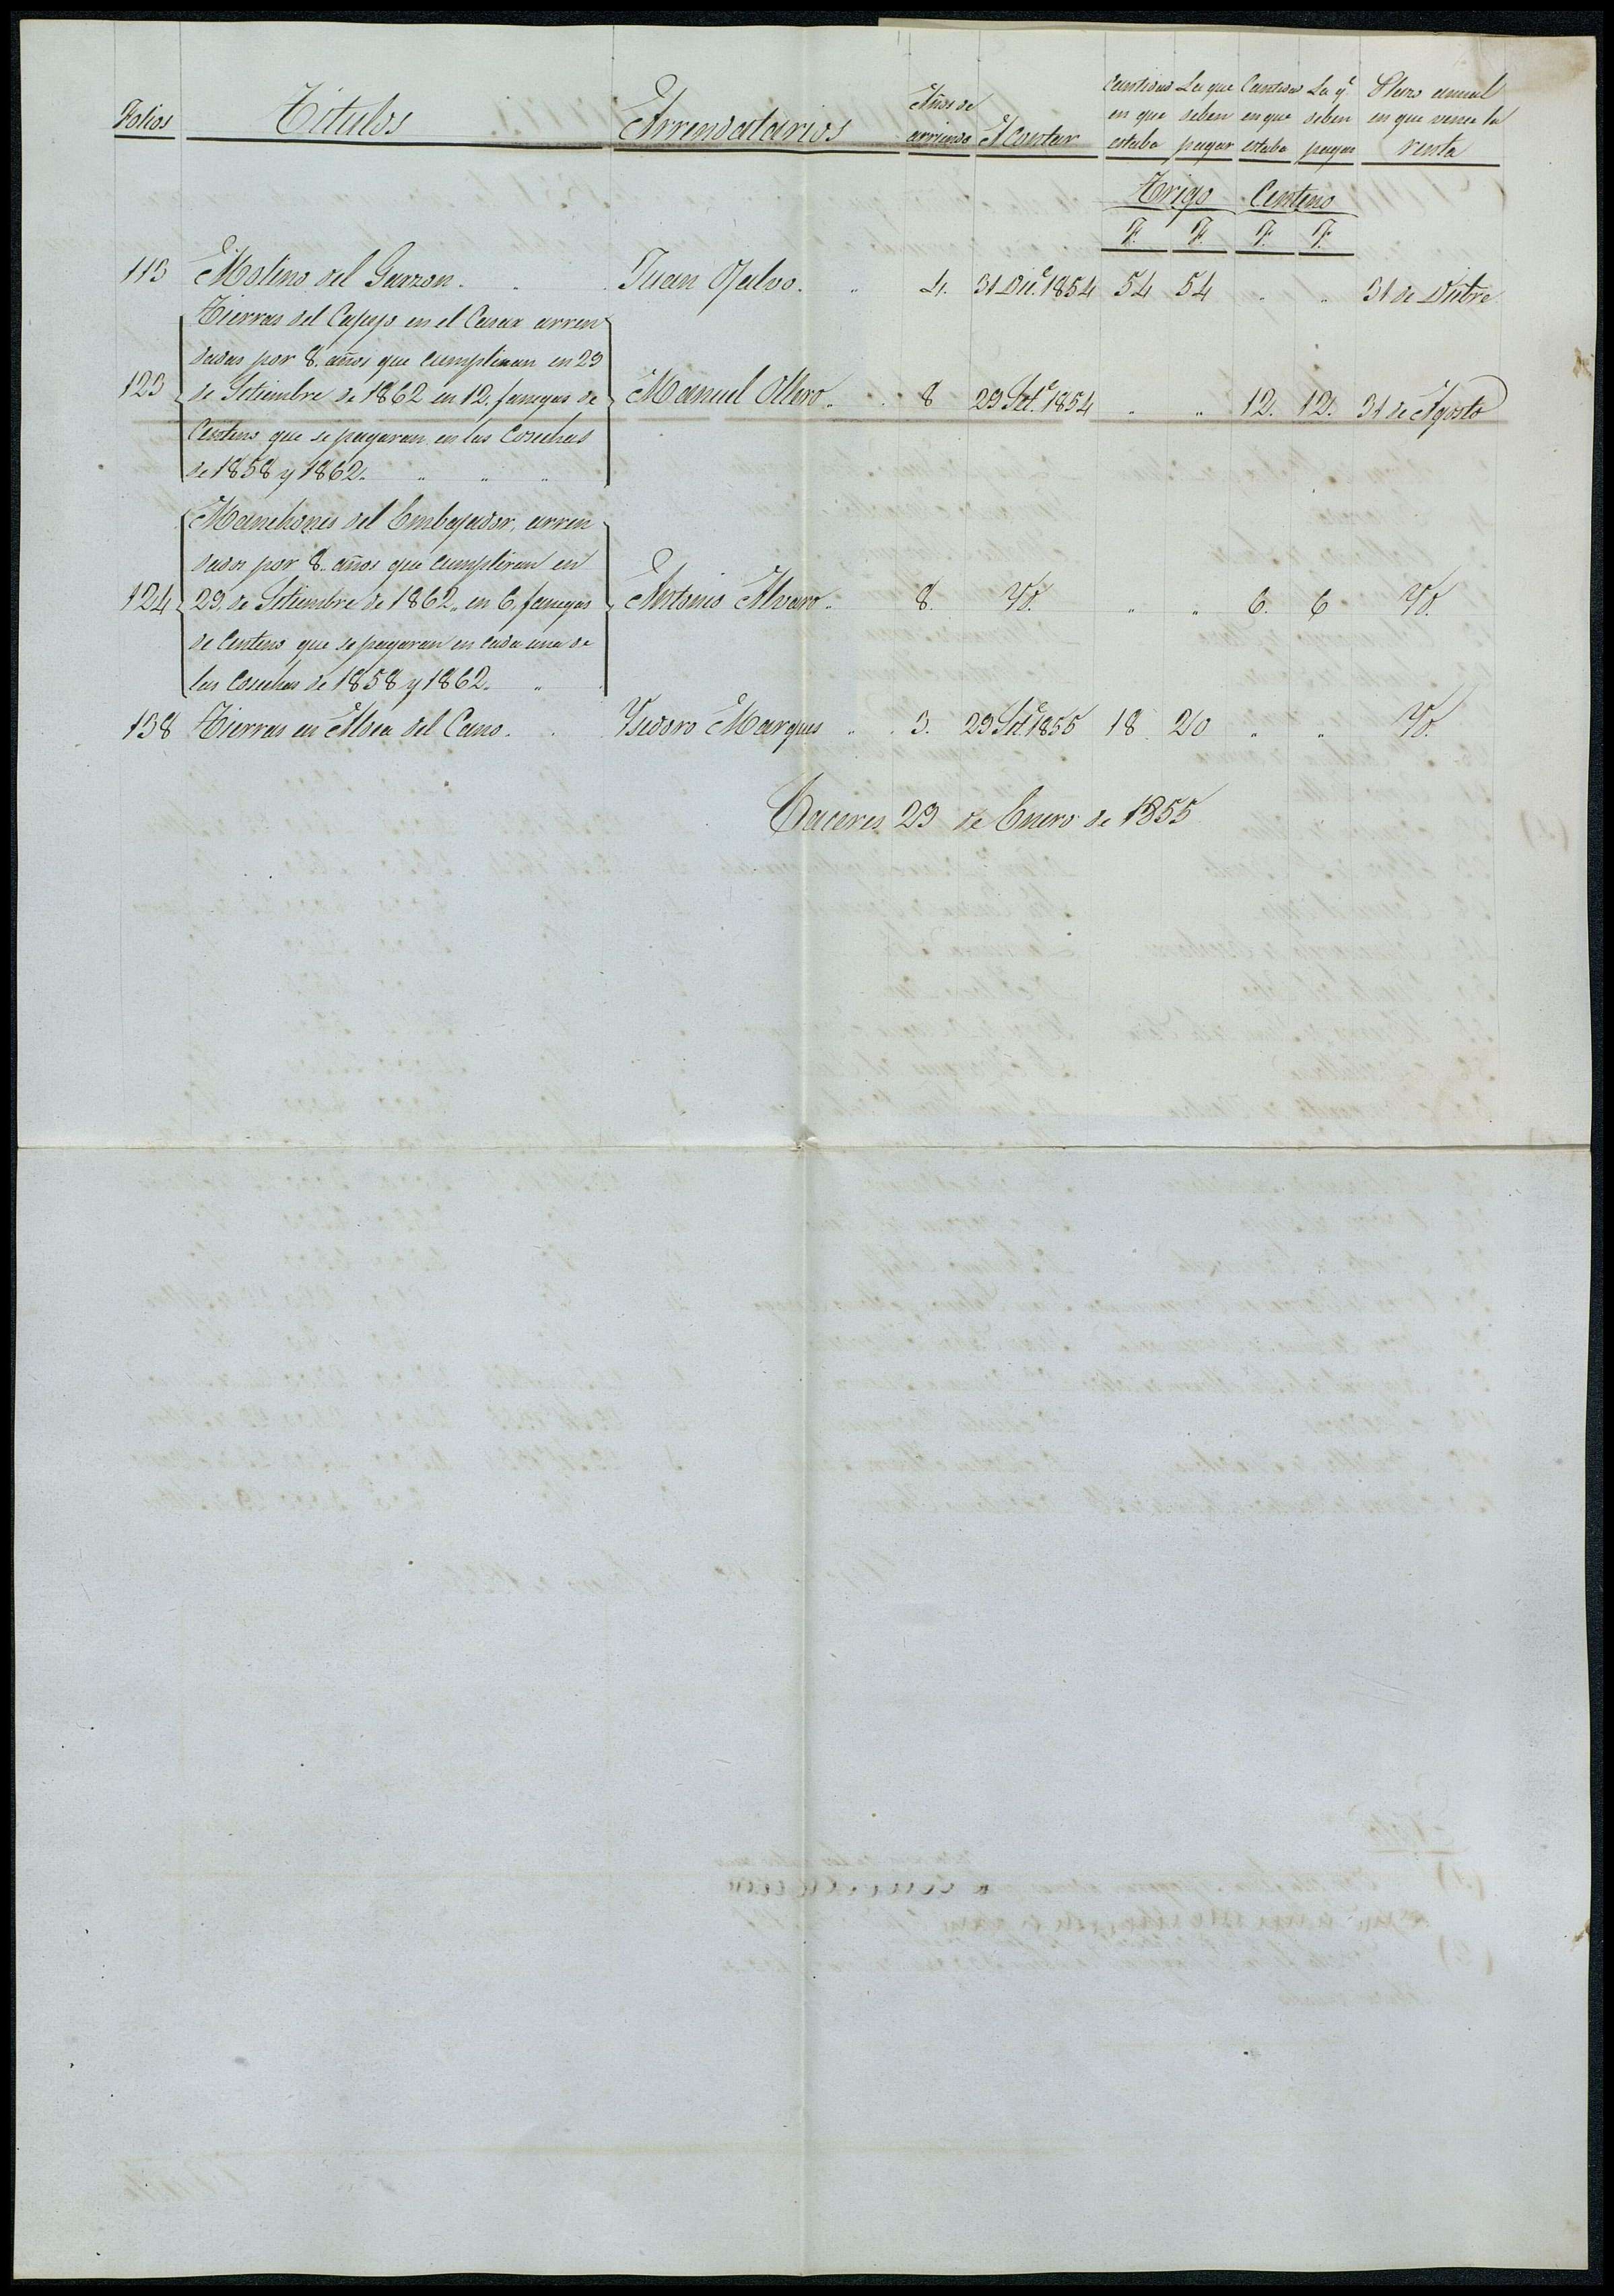 Folios Titulos Arrendatarios Años de arriendo A contar Cantidad en que estaba La que deben pagar Cantidad en que estaba La q.e deben pagar Plazo anual en que vence la renta
Trigo Centeno
F. F. F. F.
113 Molino del Garzon. Juan Ojalvo. " 4. 31 Dic.e 1854 54 54 " " 31 de Dicbre
Tierras del Capejo en el Casar arren
dadas por 8. años que cumpliran en 29
123 de Setiembre de 1862 en 12. fanegas de Manuel Ollero. 8 29 Set.e 1854 " " 12. 12. 31 de Agosto
Centeno que se pagaran en las Cosechas
de 1858 y 1862. " " "
Manchones del Embajador, arren
dados por 8. años que cumpliran en
124 29. de Setiembre de 1862. en 6. fanegas Antonio Alvaro. 8. Yd. " " 6. 6 Yd.
de Centeno que se pagaran en cada una de
las Cosechas de 1858 y 1862. "
138 Tierras en Aldea del Cano. Ysidoro Marques " 3. 29 Set.e 1855 18 20 " " Yd.
Caceres 29 de Enero de 1855